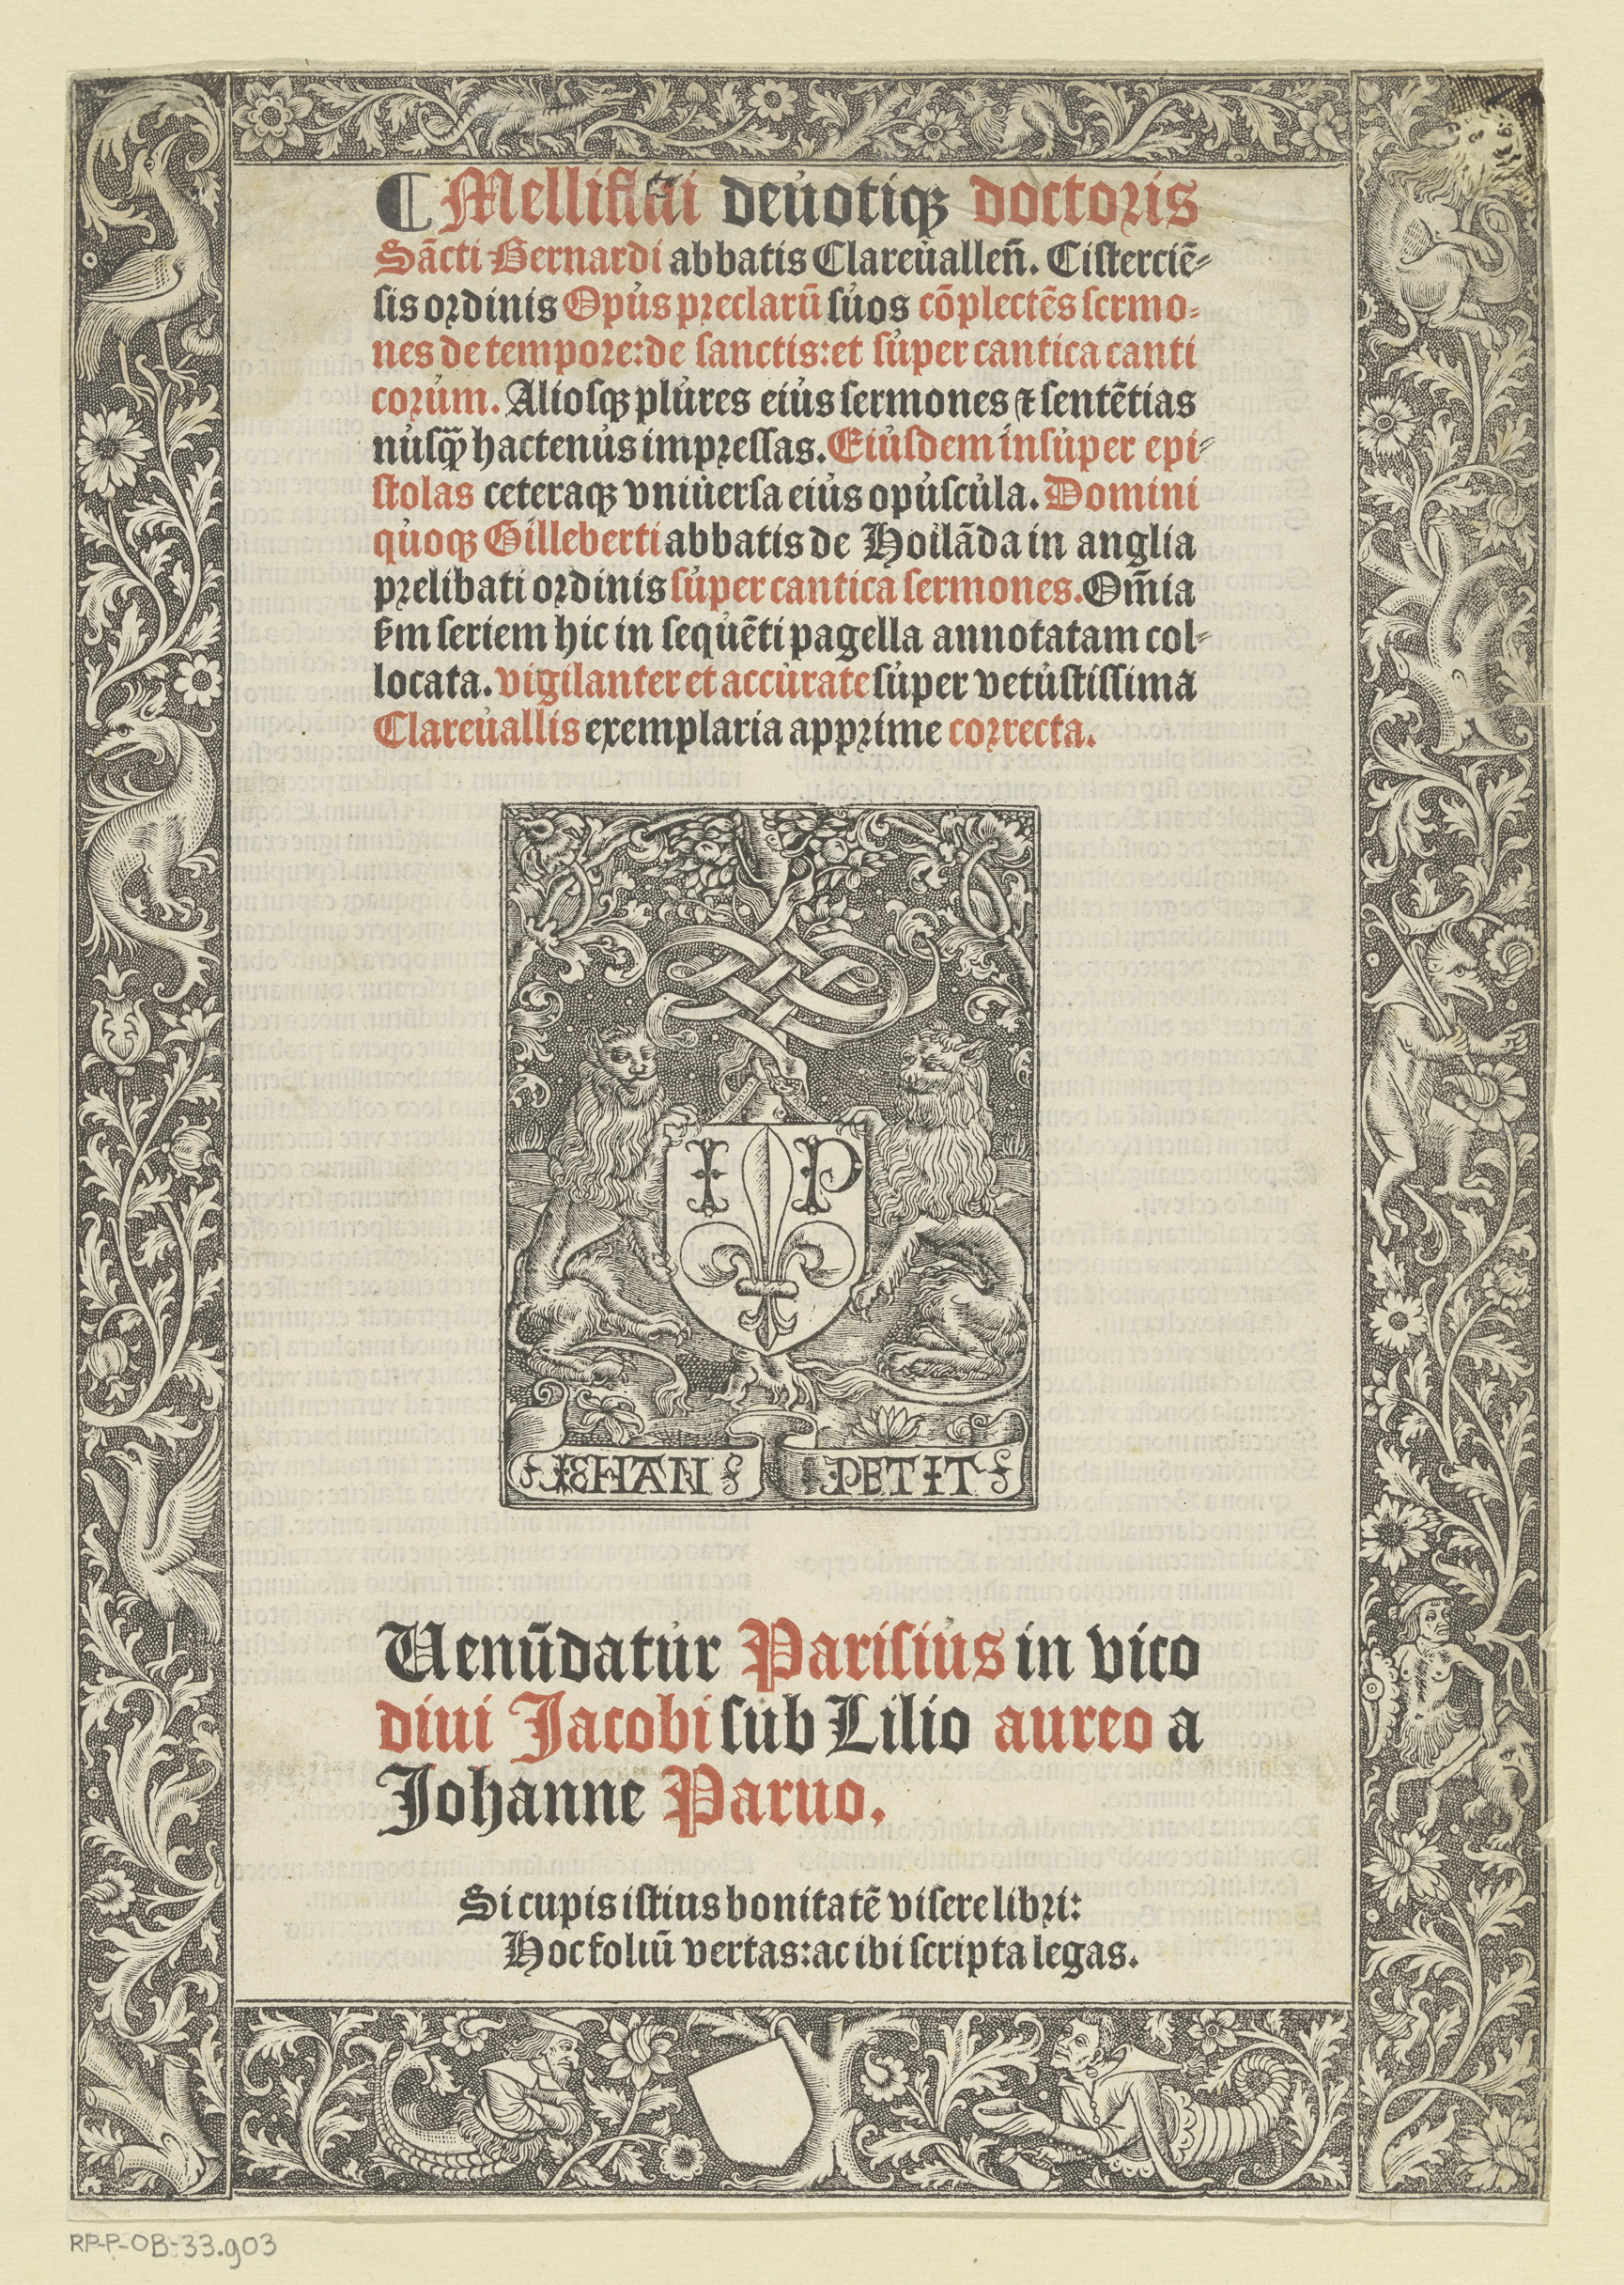 ¶ Melliflui deuotiqꝫ doctoris
Sācti Bernardi abbatis Clareuallen̄. Cisterciē⸗
sis ordinis Opus preclarū suos cōplectēs sermo⸗
nes de tempore:de sanctis:et super cantica canti
corum. Aliosqꝫ plures eius sermones ⁊ sentētias
nusqꝫ̄ hactenus impressas. Eiusdem insuper epi⸗
stolas ceteraqꝫ vniuersa eius opuscula. Domini
quoqꝫ Gilleberti abbatis de Hoilāda in anglia
prelibati ordinis super cantica sermones. Om̄ia
ẜm seriem hic in sequēti pagella annotatam col⸗
locata. vigilanter et accurate super vetustissima
Clareuallis exemplaria apprime correcta.
I P
IEHAN PETIT
Uenūdatur Parisius in vico
diui Jacobi sub Lilio aureo a
Johanne Paruo.
Si cupis istius bonitatē visere libri:
Hoc foliū vertas:ac ibi scripta legas.
RP-P-OB-33.903